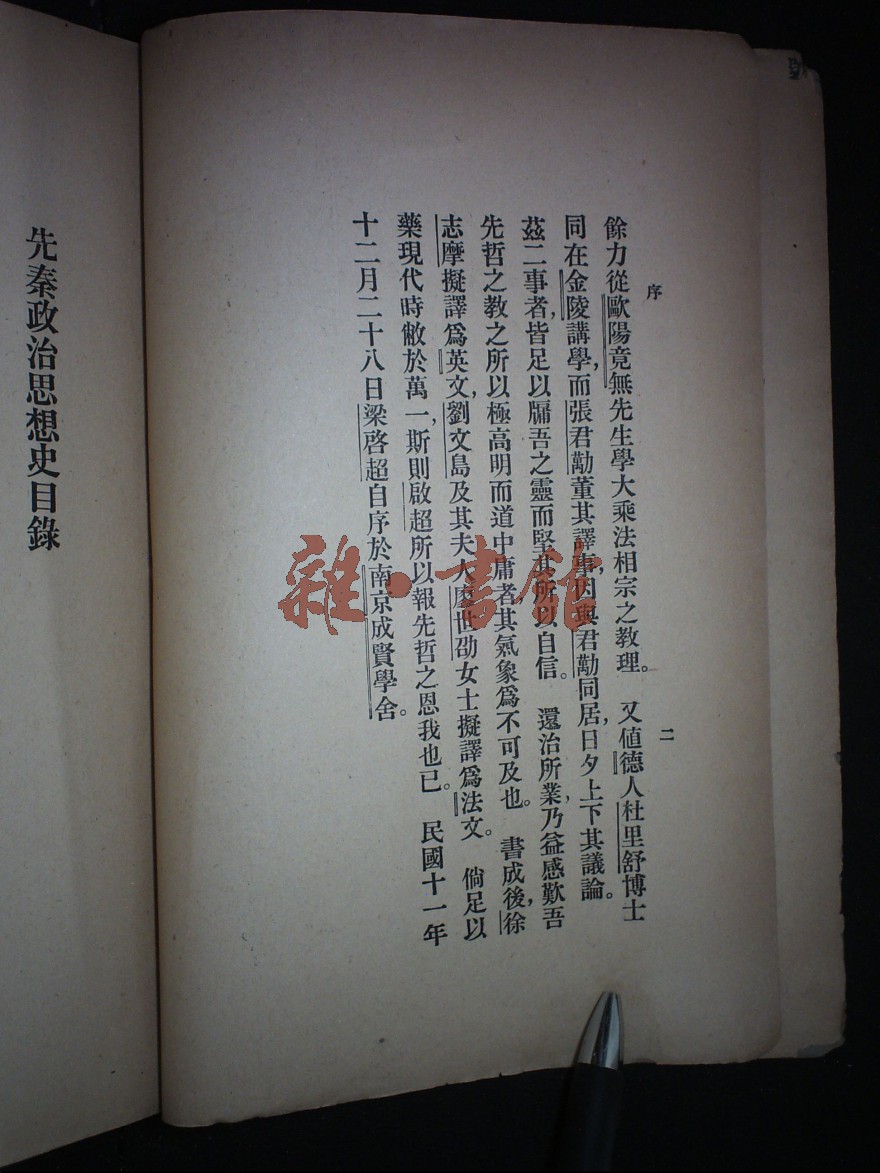 序
二
餘力從歐陽竟無先生學大乘法相宗之教理。又値德人杜里舒博士
同在金陵講學,而張君勱董其譯事,因與君勱同居,日夕上下其議論。
茲二事者,皆足以牖吾之靈而堅其所以自信。還治所業,乃益感歎吾
先哲之教之所以極高明而道中庸者,其氣象爲不可及也。書成後,徐
志摩擬譯爲英文,劉文島及其夫人廖世劭女士擬譯爲法文。倘足以
藥現代時敝於萬一,斯則啟超所以報先哲之恩我也已。民國十一年
十二月二十八日梁啓超自序於南京成賢學舍。
先秦政治思想史目錄
雜·書館